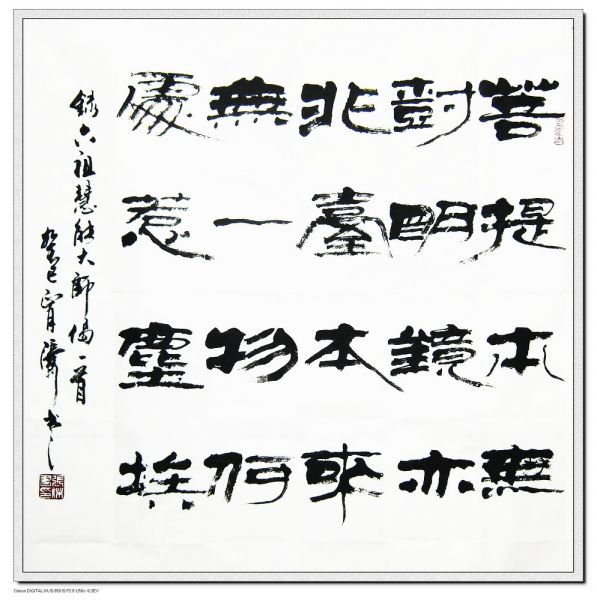 菩提本無
樹明鏡亦
非臺本來
無一物何
處惹塵埃
錄六祖慧能大師偈一首
癸巳
Canon DIGITAL IXUS 850 IS F2.8 1/50s -0.3EV